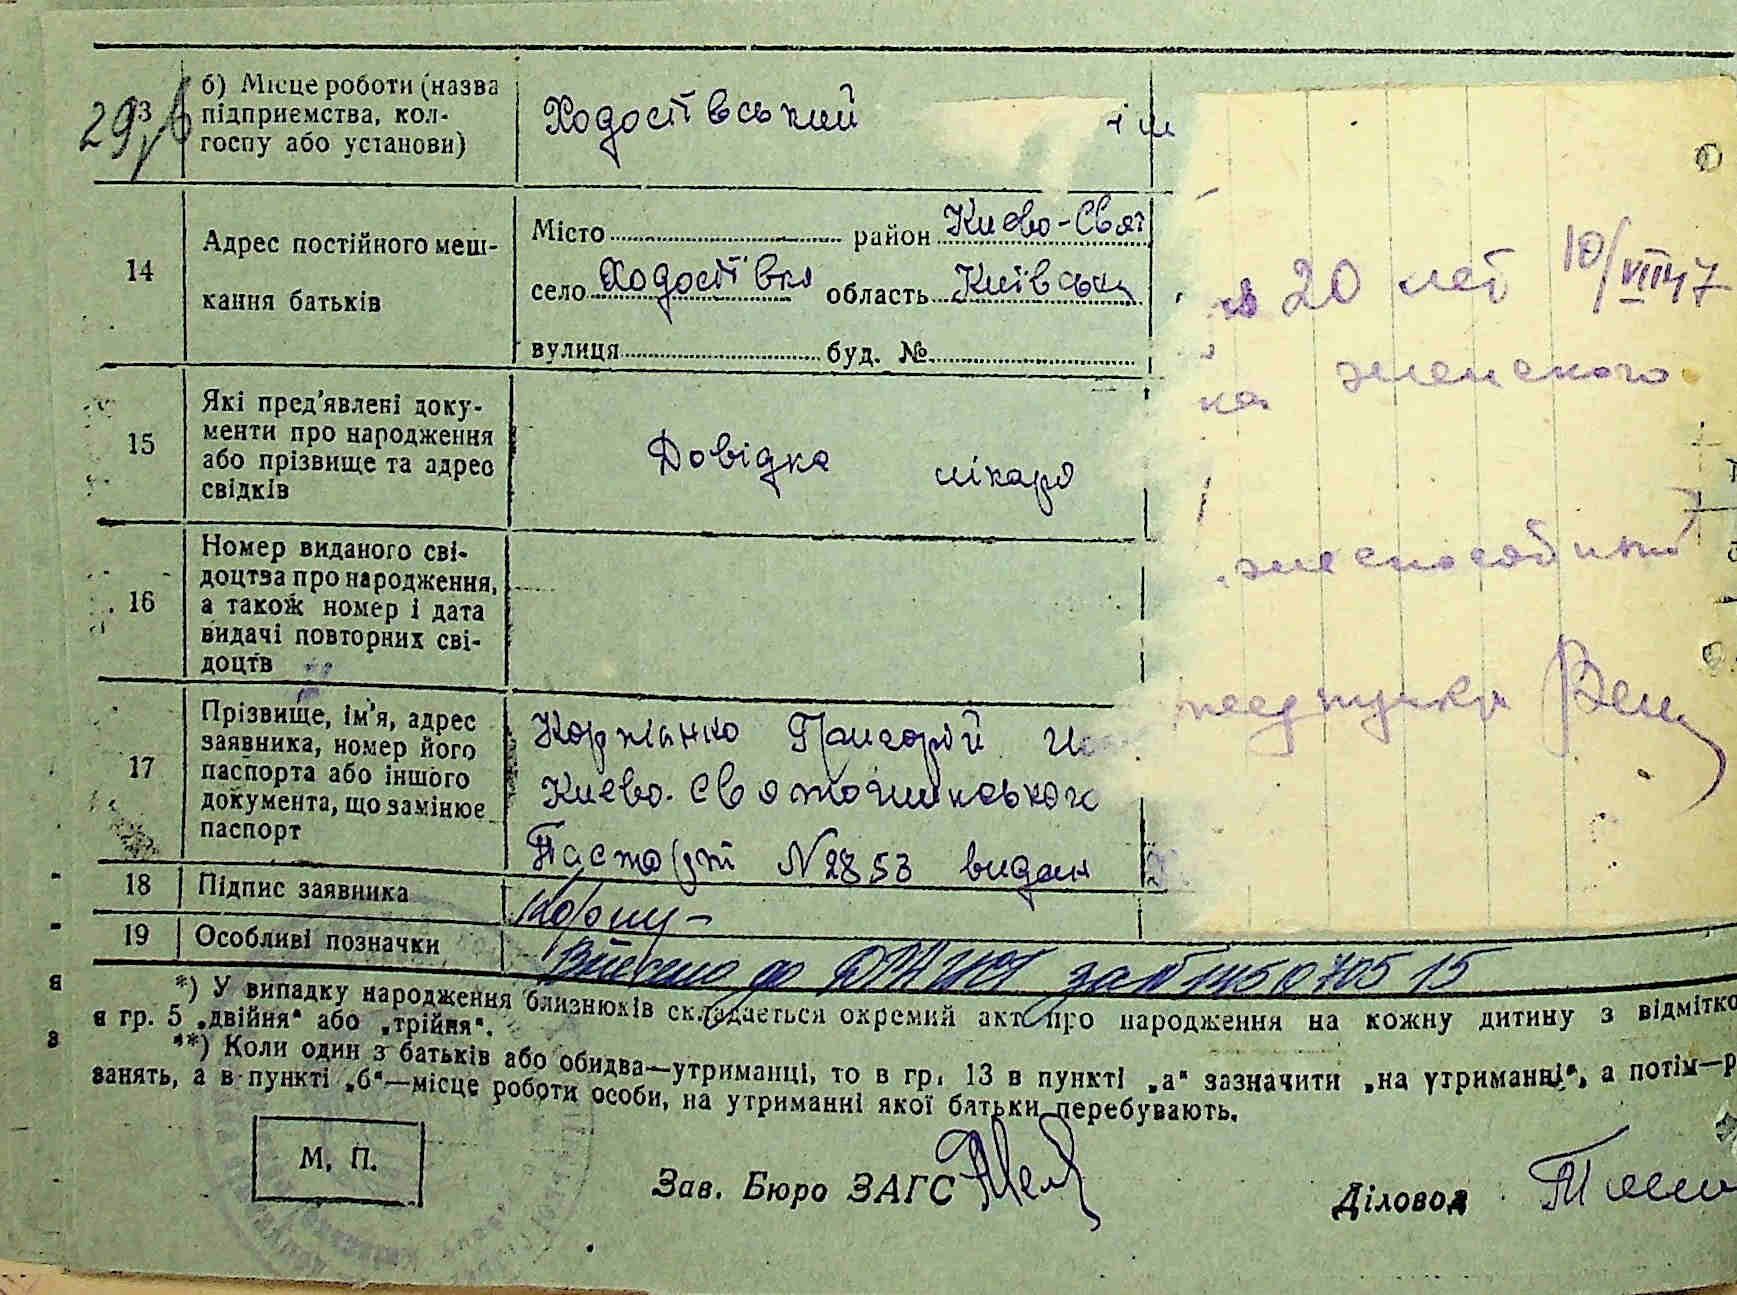 29/V
13
б) Місце роботи (назва
підприємства, кол-
госпу або установи)
Ходосіївський
14
Адрес постійного меш-
кання батьків
Місто район Києво-Свят
село Ходосіївка область Київська
вулиця буд. №
15
Які пред'явлені доку-
менти про народження
або прізвище та адрес
свідків
Довідка лікаря
16
Номер виданого сві-
доцтва про народження,
а також номер і дата
видачі повторних сві-
доцтв
17
Прізвище, ім'я, адрес
заявника, номер його
паспорта або іншого
документа, що замінює
паспорт
Григорій
Києво-Святошинського
Паспорт N 2853 видан
18
Підпис заявника
19
Особливі позначки
Внесено до ДРАЦСГ за №
*) У випадку народження близнюків складається окремий акт про народження на кожну дитину з відмітко
в гр. 5 „двійня“ або „трійня“.
**) Коли один з батьків або обидва—утриманці, то в гр. 13 в пункті „а“ зазначити „на утриманні“, а потім—р
занять, а в пункті „б“—місце роботи особи, на утриманні якої батьки перебувають.
М. П.
Зав. Бюро ЗАГС
Діловод
20 лет 10/VIII 47
ка женского